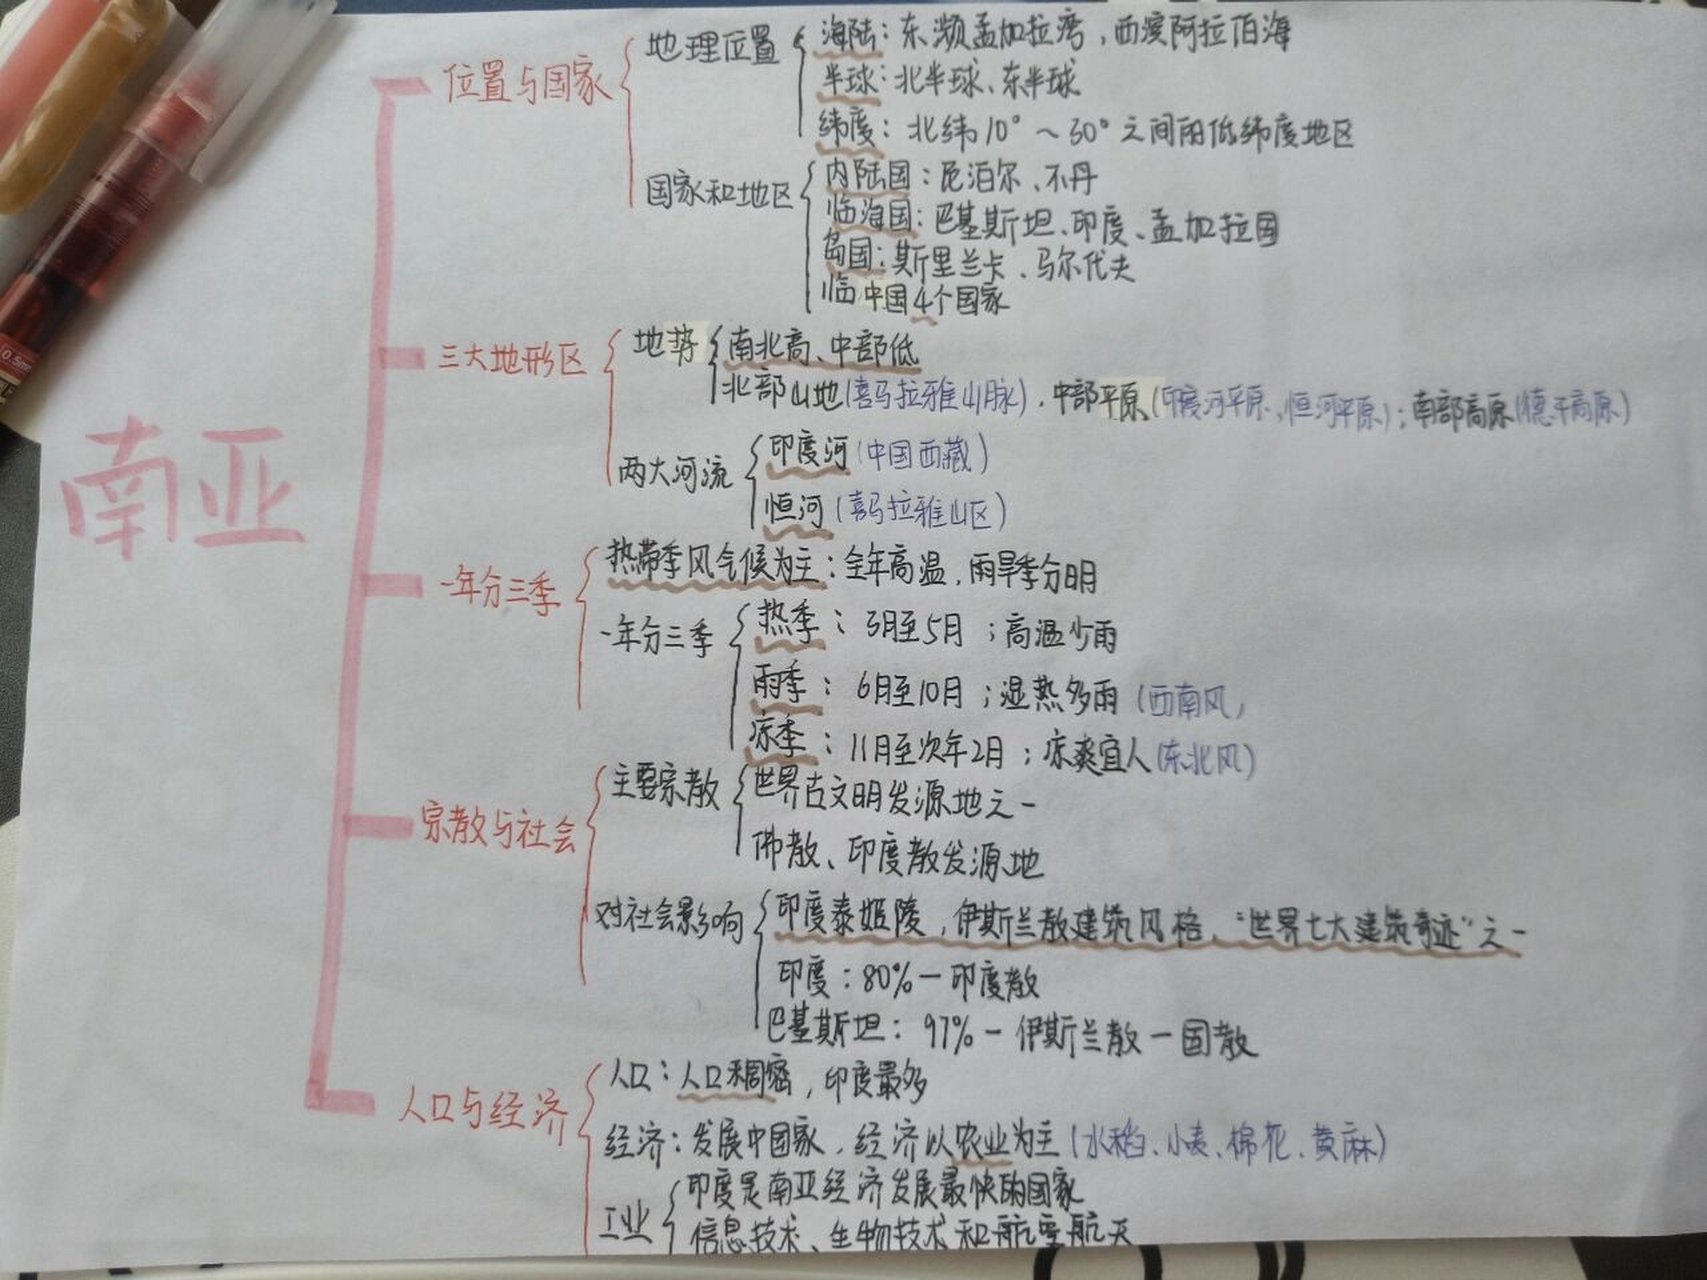 南亚
位置与国家
地理位置
海陆：东濒孟加拉湾，西濒阿拉伯海
半球：北半球、东半球
纬度：北纬10°～30°之间的低纬度地区
国家和地区
内陆国：尼泊尔、不丹
临海国：巴基斯坦、印度、孟加拉国
岛国：斯里兰卡、马尔代夫
临中国4个国家
三大地形区
地势
南北高、中部低
北部山地(喜马拉雅山脉)，中部平原(印度河平原、恒河平原)；南部高原(德干高原)
两大河流
印度河(中国西藏)
恒河(喜马拉雅山区)
一年分三季
热带季风气候为主：全年高温，雨旱季分明
一年分三季
热季：3月至5月；高温少雨
雨季：6月至10月；湿热多雨(西南风)
凉季：11月至次年2月；凉爽宜人(东北风)
宗教与社会
主要宗教
世界古文明发源地之一
佛教、印度教发源地
对社会影响
印度泰姬陵，伊斯兰教建筑风格，“世界七大建筑奇迹”之一
印度：80%—印度教
巴基斯坦：97%—伊斯兰教—国教
人口与经济
人口：人口稠密，印度最多
经济：发展中国家，经济以农业为主(水稻、小麦、棉花、黄麻)
工业
印度是南亚经济发展最快的国家
信息技术、生物技术和航空航天
0.5mm